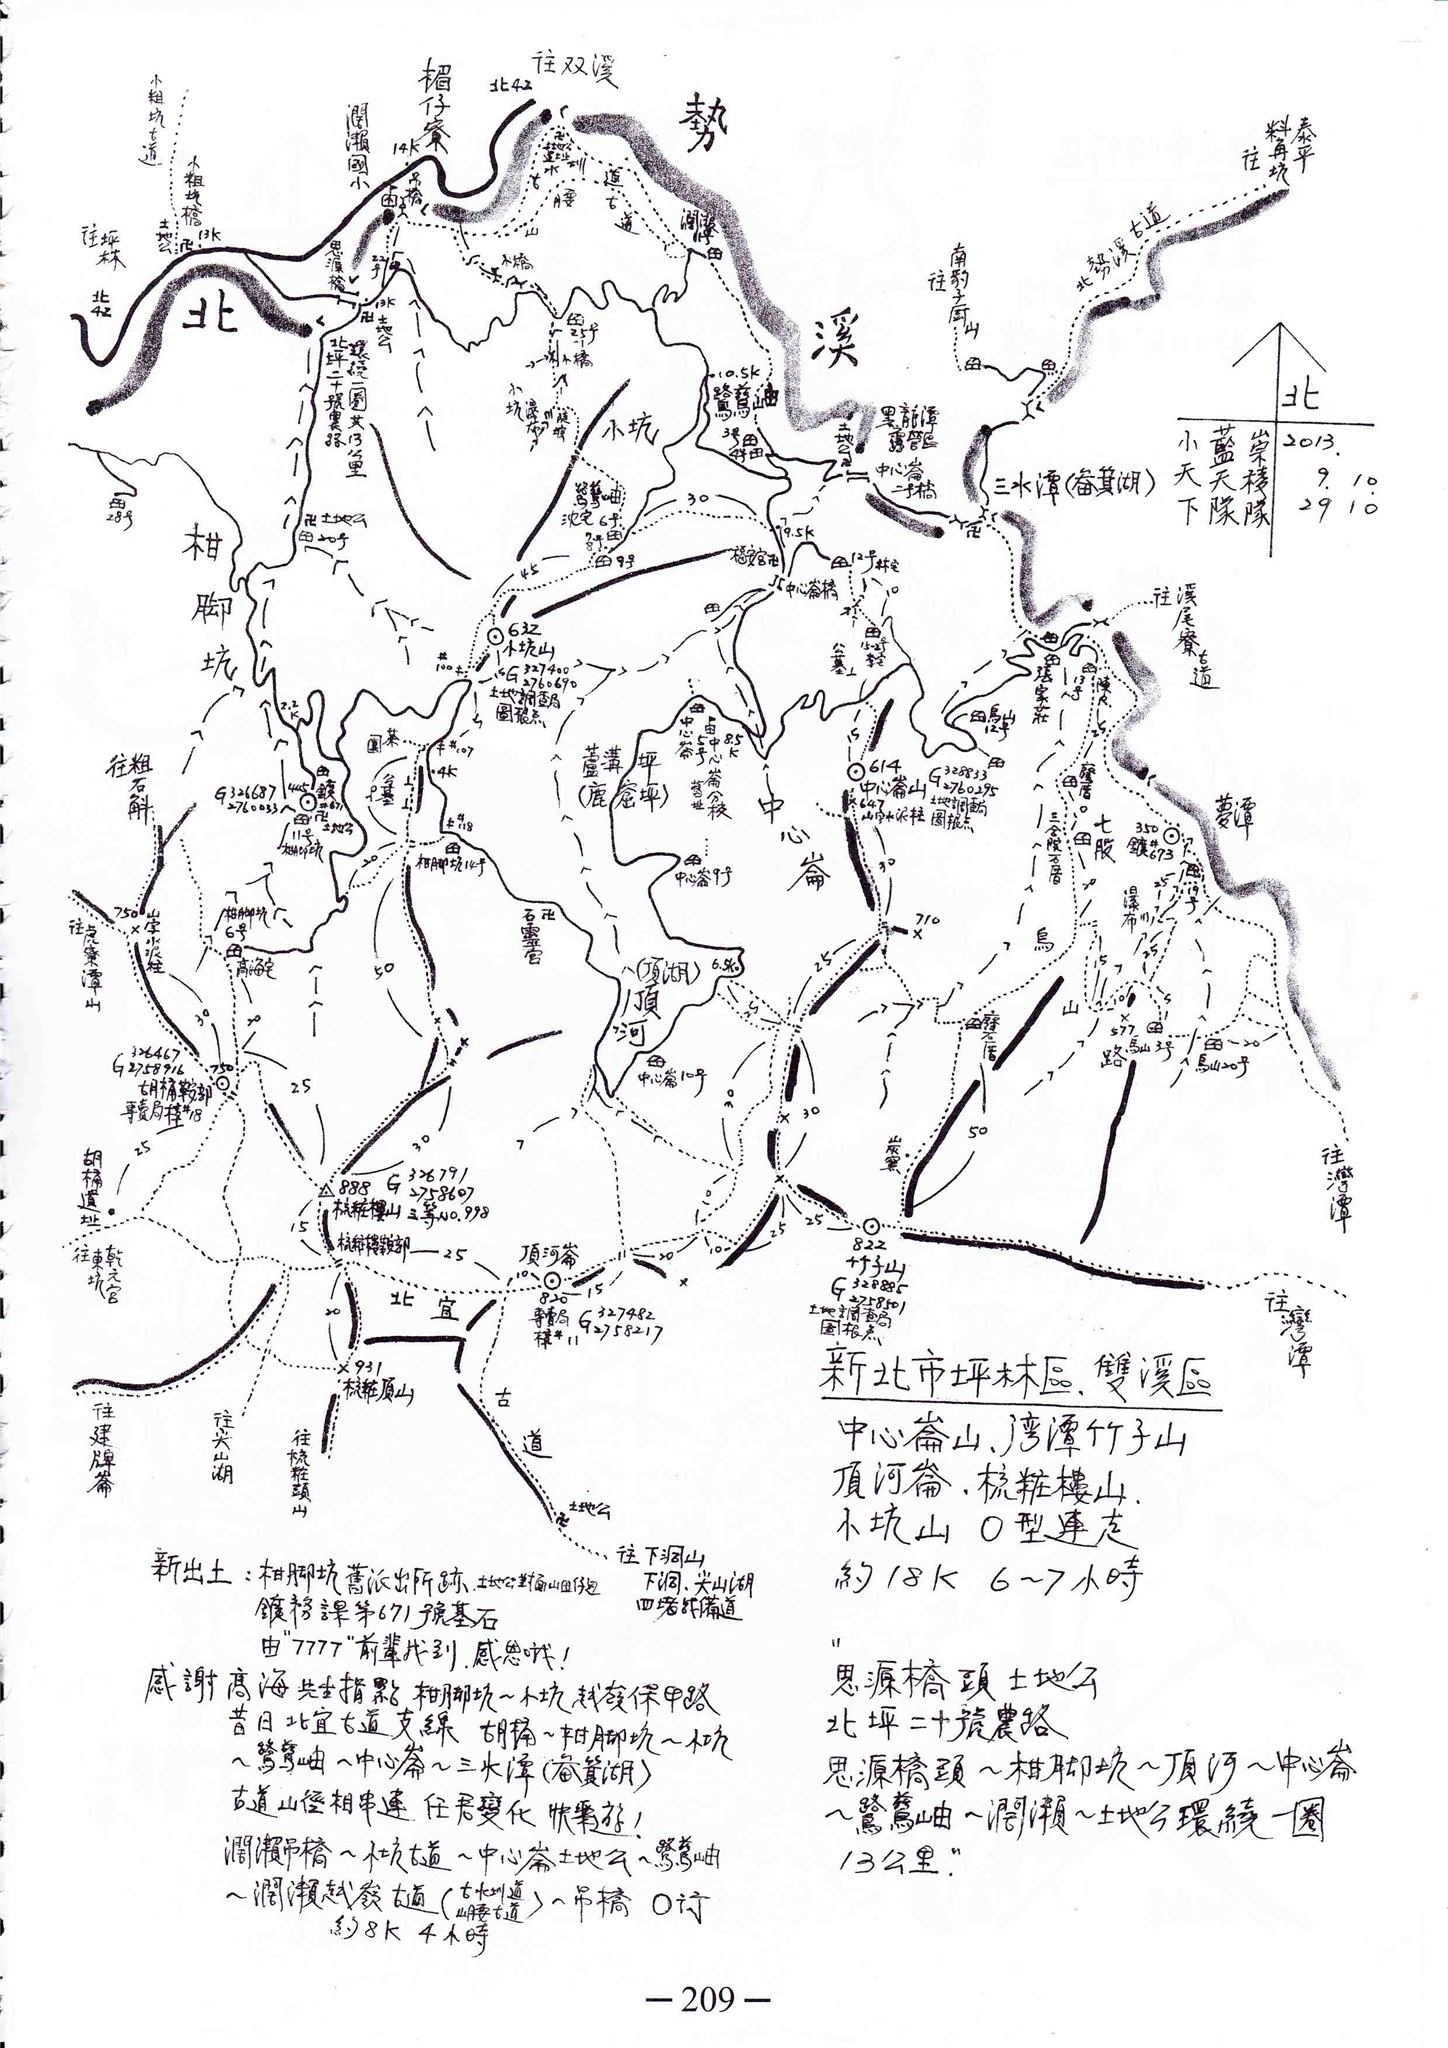 往双溪
楣仔寮
北42
勢
小粗坑古道
闊瀨國小
14K
吊橋
小粗坑橋
土地公
13K
往坪林
北42
北
思源橋
13K
土地公
北坪二十號農路
環繞一圈共13公里
古道
山腰古道
木橋
25号
小坑
往
泰平
料角坑
北勢溪古道
往南豹子廚山
溪
10.5K
鷺鷥岫
黑龍潭
露營區
土地公
中心崙
二号橋
三水潭(畚箕湖)
北
小藍崇 2013.
天天稜 9. 10.
下隊隊 29 10
28号
柑脚坑
土地公
20号
鷺鷥岫
6号
9号
30
45
9.5K
中心崙橋
12号
往溪尾寮古道
632
小坑山
G 327400
2760690
土地調查局
圖根点
#100
#107
公墓
張家莊
13号
烏山
12号
2.2K
往粗石斛
G 326687
2760033
445
鑛#671
土地公
11号
柑脚坑
4K
#118
柑脚坑14号
蘆溝坪
(鹿窟坪)
中心崙
5号
8.5K
中心崙分校
舊址
中心崙
614
中心崙山
G 328833
2760295
土地調查局
圖根点
647
山字水泥柱
七股
三合院石厝
350
鑛#673
夢潭
瀑布
中心崙9号
710
750
山字水泥柱
往虎寮潭山
柑脚坑
6号
高海宅
石靈宮
50
30
25
(頂湖)
6.5K
頂河
中心崙10号
烏山路
石厝
577
烏山3号
烏山20号
20
G 326467
2758916
750
胡桶鞍部
專賣局樁#18
胡桶遺址
25
30
炭窯
50
往灣潭
888
G 326791
2758607
梳粧樓山 三等No.998
梳粧樓鞍部
15
25
往乾元宮
東坑
頂河崙
10
820
專賣局
樁#11
G 327482
2758217
15
20
25
822
竹子山
G 328885
2758501
土地調查局
圖根点
往灣潭
北宜古道
20
931
梳粧頂山
往建牌崙
往尖山湖
往梳粧頭山
土地公
往下洞山
下洞、尖山湖
四堵戰備道
新北市坪林區、雙溪區
中心崙山、湾潭竹子山
頂河崙、梳粧樓山、
小坑山 O型連走
約18K 6~7小時
新出土：柑脚坑舊派出所跡、土地公對面山田仔邊
鑛務課第671號基石
由"7777"前輩找到、感恩哦！
感謝高海先生指點 柑脚坑~小坑越發保甲路
昔日北宜古道支線 胡桶~柑脚坑~小坑
~鷺鷥岫~中心崙~三水潭(畚箕湖)
古道山徑相串連 任君變化 快樂遊！
闊瀨吊橋~小坑古道~中心崙土地公~鷺鷥岫
~闊瀨越發古道(古水圳道 山腰古道)~吊橋 O行
約8K 4小時
"
思源橋頭土地公
北坪二十號農路
思源橋頭~柑脚坑~頂河~中心崙
~鷺鷥岫~闊瀨~土地公環繞一圈
13公里"
— 209 —